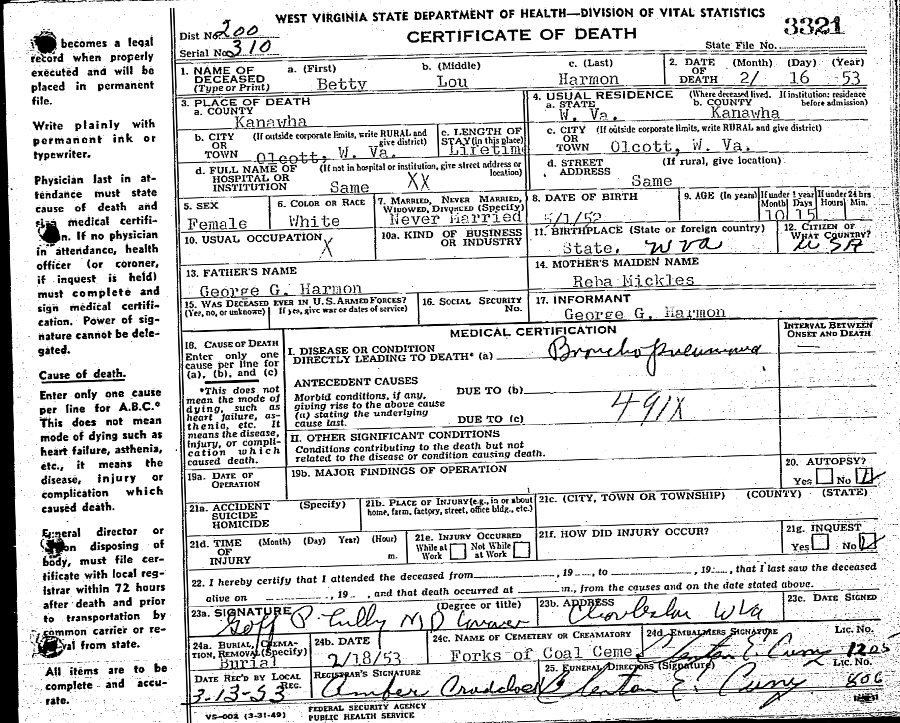 WEST VIRGINIA STATE DEPARTMENT OF HEALTH—DIVISION OF VITAL STATISTICS
CERTIFICATE OF DEATH
Dist No. 200
Serial No. 310
State File No. 3321
becomes a legal
record when properly
executed and will be
placed in permanent
file.
Write plainly with
permanent ink or
typewriter.
Physician last in at-
tendance must state
cause of death and
medical certifi-
If no physician
in attendance, health
officer (or coroner,
if inquest is held)
must complete and
sign medical certifi-
cation. Power of sig-
nature cannot be dele-
gated.
Cause of death.
Enter only one cause
per line for A.B.C.*
This does not mean
mode of dying such as
heart failure, asthenia,
etc., it means the
disease, injury or
complication which
caused death.
Funeral director or
on disposing of
body, must file cer-
tificate with local reg-
istrar within 72 hours
after death and prior
to transportation by
common carrier or re-
moval from state.
All items are to be
complete and accu-
rate.
1. NAME OF DECEASED (Type or Print) a. (First) Betty b. (Middle) Lou c. (Last) Harmon
2. DATE OF DEATH (Month) (Day) (Year) 2/ 16 53
3. PLACE OF DEATH
a. COUNTY Kanawha
4. USUAL RESIDENCE (Where deceased lived. If institution: residence before admission)
a. STATE W. Va. b. COUNTY Kanawha
b. CITY OR TOWN (If outside corporate limits, write RURAL and give district) Olcott, W. Va.
c. LENGTH OF STAY (in this place) Lifetime
c. CITY OR TOWN (If outside corporate limits, write RURAL and give district) Olcott, W. Va.
d. FULL NAME OF HOSPITAL OR INSTITUTION (If not in hospital or institution, give street address or location) Same XX
d. STREET ADDRESS (If rural, give location) Same
5. SEX Female
6. COLOR OR RACE White
7. MARRIED, NEVER MARRIED, WIDOWED, DIVORCED (Specify) Never Married
8. DATE OF BIRTH 5/1/52
9. AGE (In years) If under 1 year Months 10 Days 15 If under 24 hrs Hours Min.
10. USUAL OCCUPATION X
10a. KIND OF BUSINESS OR INDUSTRY
11. BIRTHPLACE (State or foreign country) State. W Va
12. CITIZEN OF WHAT COUNTRY? USA
13. FATHER'S NAME George G. Harmon
14. MOTHER'S MAIDEN NAME Reba Mickles
15. WAS DECEASED EVER IN U.S. ARMED FORCES? (Yes, no, or unknown) If yes, give war or dates of service)
16. SOCIAL SECURITY No.
17. INFORMANT George G. Harmon
MEDICAL CERTIFICATION
INTERVAL BETWEEN ONSET AND DEATH
18. CAUSE OF DEATH
Enter only one cause per line for (a), (b), and (c)
*This does not mean the mode of dying, such as heart failure, asthenia, etc. It means the disease, injury, or complication which caused death.
I. DISEASE OR CONDITION DIRECTLY LEADING TO DEATH* (a) Bronchopneumonia
ANTECEDENT CAUSES
Morbid conditions, if any, giving rise to the above cause (a) stating the underlying cause last.
DUE TO (b)
DUE TO (c)
491X
II. OTHER SIGNIFICANT CONDITIONS
Conditions contributing to the death but not related to the disease or condition causing death.
19a. DATE OF OPERATION
19b. MAJOR FINDINGS OF OPERATION
20. AUTOPSY? Yes No
21a. ACCIDENT SUICIDE HOMICIDE (Specify)
21b. PLACE OF INJURY (e.g., in or about home, farm, factory, street, office bldg., etc.)
21c. (CITY, TOWN OR TOWNSHIP) (COUNTY) (STATE)
21d. TIME OF INJURY (Month) (Day) (Year) (Hour) m.
21e. INJURY OCCURRED While at Work Not While at Work
21f. HOW DID INJURY OCCUR?
21g. INQUEST Yes No
22. I hereby certify that I attended the deceased from , 19 , to , 19 , that I last saw the deceased
alive on , 19 , and that death occurred at m., from the causes and on the date stated above.
23a. SIGNATURE (Degree or title) Goff P. Lilly M D Coroner
23b. ADDRESS Charleston W Va
23c. DATE SIGNED
24a. BURIAL, CREMATION, REMOVAL (Specify) Burial
24b. DATE 2/18/53
24c. NAME OF CEMETERY OR CREAMATORY Forks of Coal Ceme.
24d. EMBALMERS SIGNATURE LIC. No. 1205
DATE REC'D BY LOCAL REG. 3-13-53
REGISTRAR'S SIGNATURE Amber Craddock
25. FUNERAL DIRECTORS (Signature) LIC. No. 806
VS-002 (3-31-49)
FEDERAL SECURITY AGENCY
PUBLIC HEALTH SERVICE